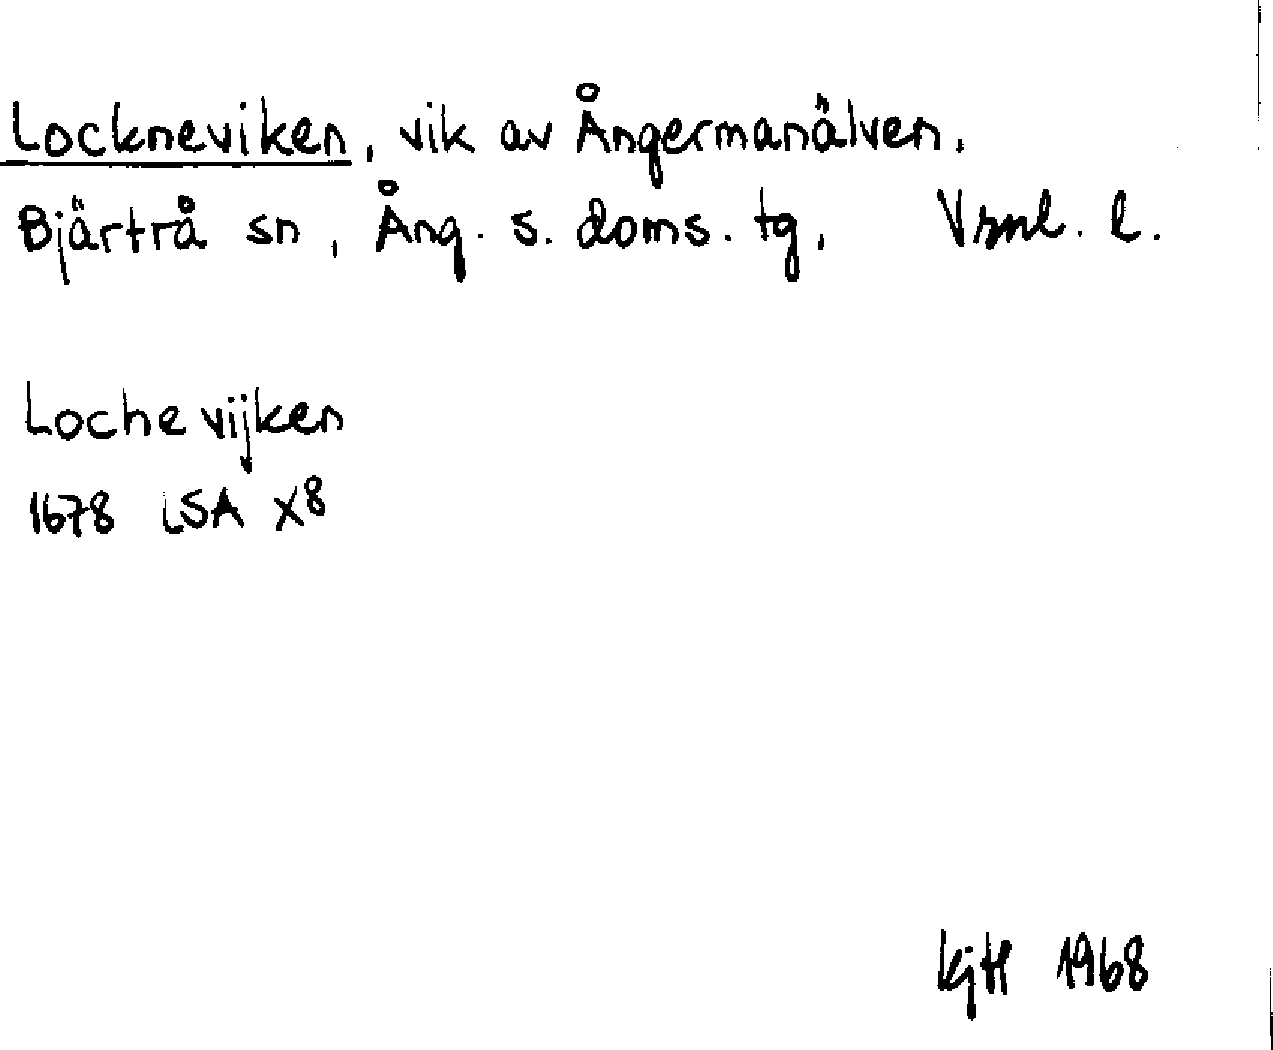 Lockneviken, vik av Ångermanälven.
Bjärtrå sn, Ång. s. doms. tg, Vrnl. l.
Loche vijken
1678 LSA X8
KjH 1968